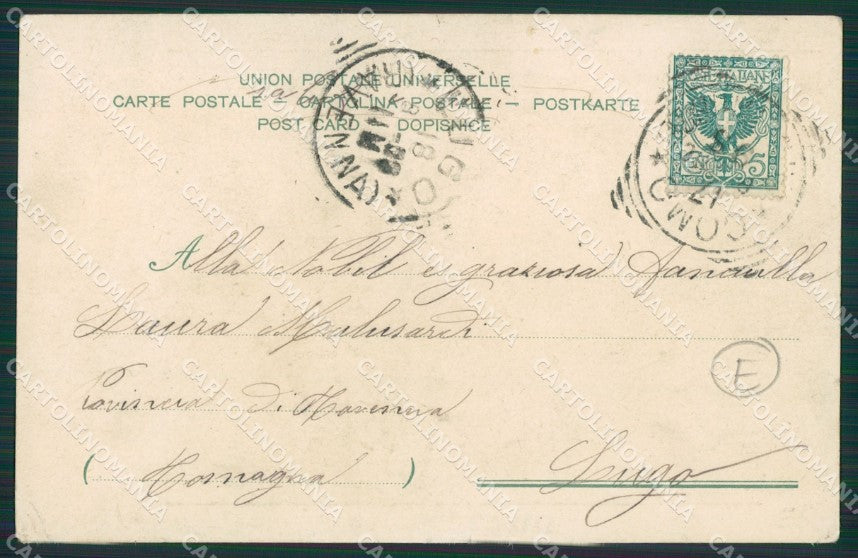 UNION POSTALE UNIVERSELLE
CARTE POSTALE – CARTOLINA POSTALE – POSTKARTE
POST CARD – DOPISNICE
ITALIANE
5 5
COMO
LUGO
(RAVENNA)
Alla Nobil e graziosa Fanciulla
Laura Malusardi
E
Provincia di Ravenna
( Romagna ) Lugo
CARTOLINOMANIA